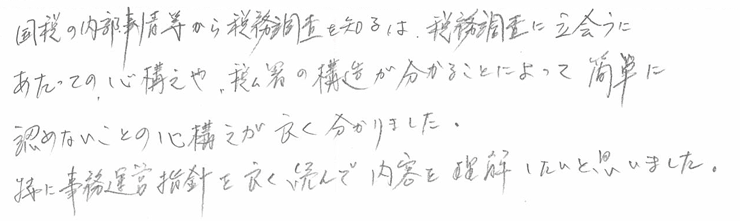 国税の内部事情等から税務調査を知るは、税務調査に立会うに
あたっての、心構えや、税ム署の構造が分かることによって簡単に
認めないことの心構えが良く分かりました。
特に事務運営指針を良く読んで内容を理解したいと思いました。